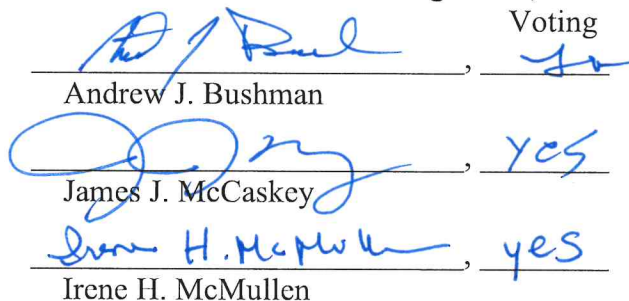 Voting
Andrew J. Bushman
, yes
James J. McCaskey
Irene H. McMullen, yes
Irene H. McMullen